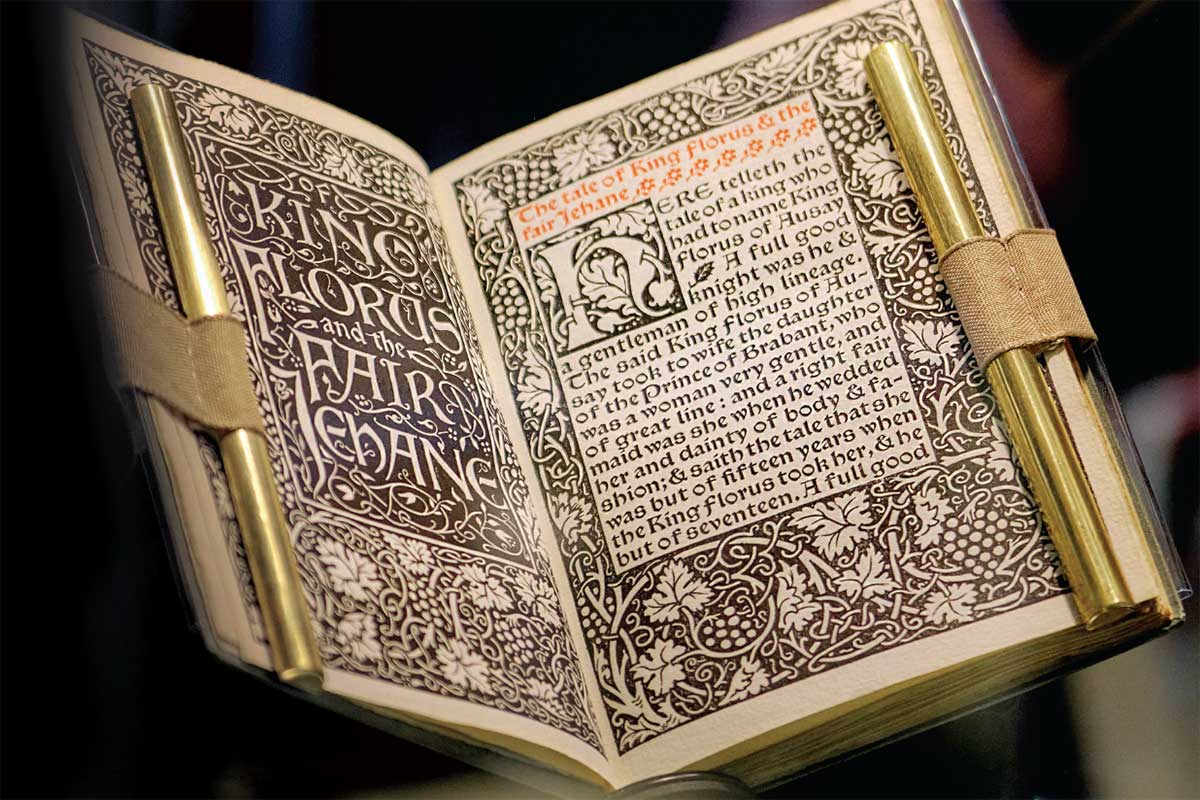 OF
KING
FLORUS
and the
FAIR
JEHANE
The tale of King Florus & the
fair Jehane
HERE telleth the
tale of a king who
had to name King
Florus of Ausay
. A full good
knight was he &
a gentleman of high lineage.
The said King Florus of Au-
say took to wife the daughter
of the Prince of Brabant, who
was a woman very gentle, and
of great line: and a right fair
maid was she when he wedded
her and dainty of body & fa-
shion; & saith the tale that she
was but of fifteen years when
the King Florus took her, & he
but of seventeen. A full good